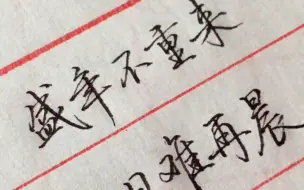 盛年不重来
日难再晨